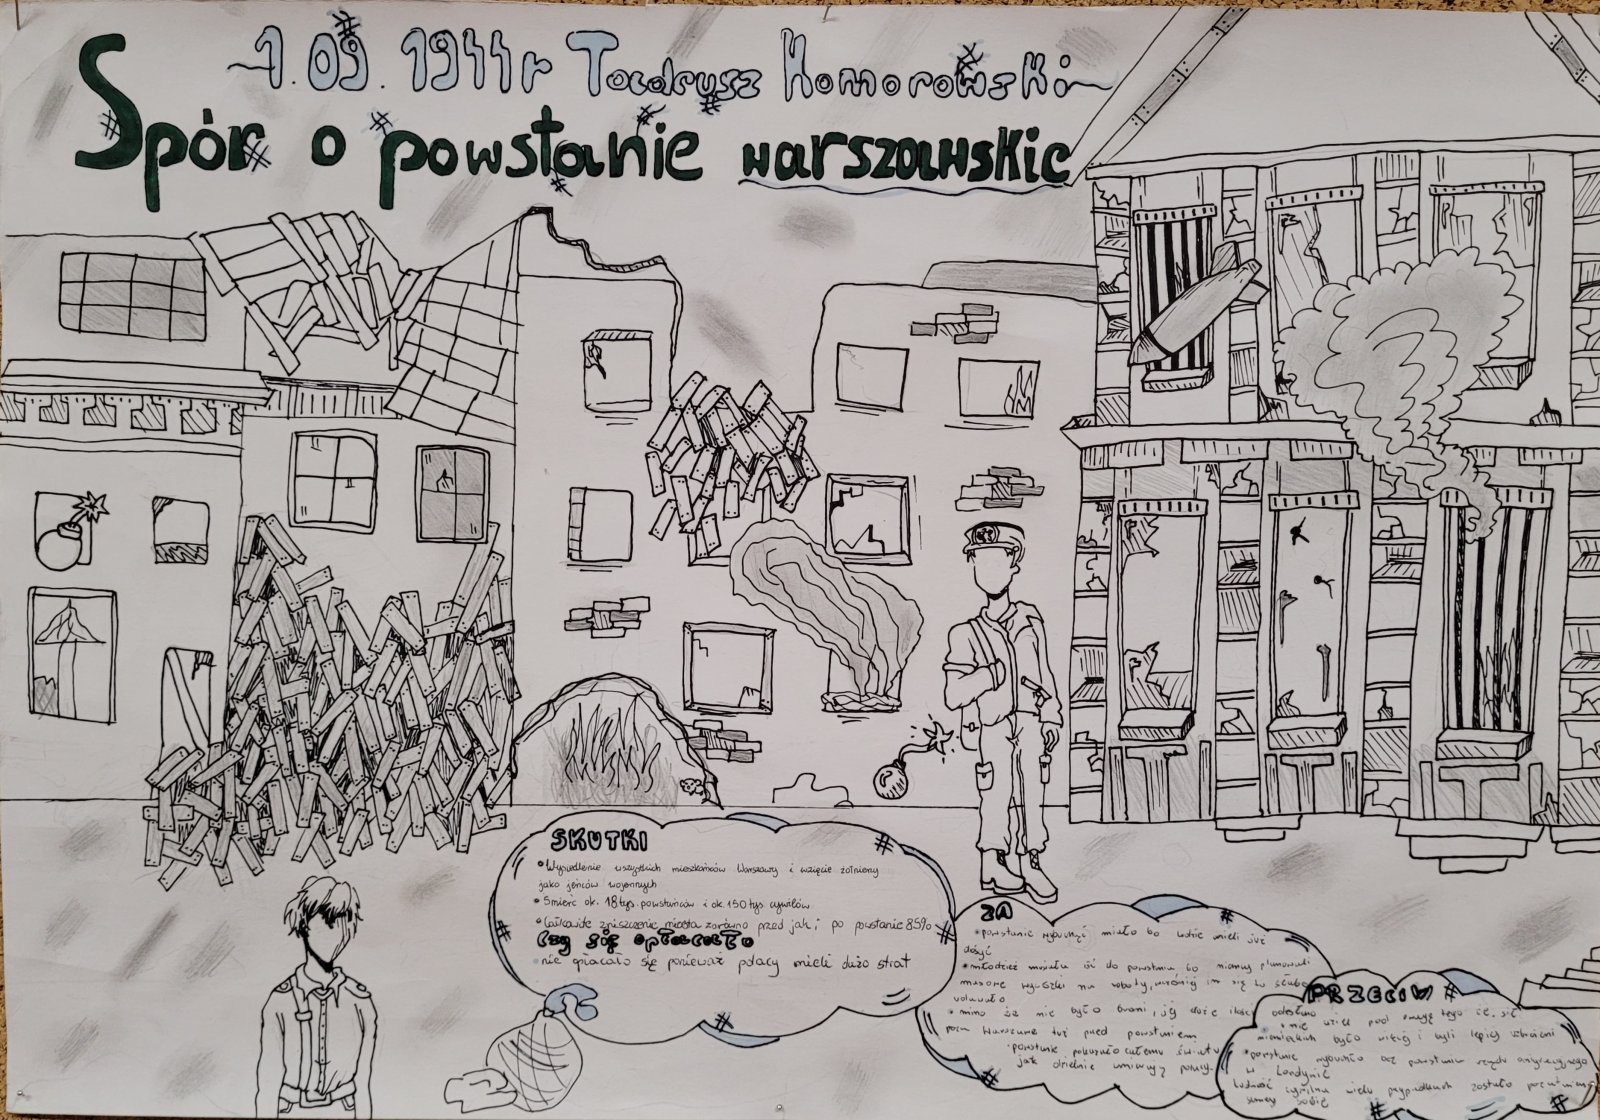 1.09.1944r Tadeusz Komorowski
Spór o powstanie warszawskie
SKUTKI
• Wypędlenie wszystkich mieszkańców Warszawy i wzięcie żołnierzy
jako jeńców wojennych
• Smierć ok. 18 tys. powstańców i ok. 150 tys. cywilów
• Całkowite zniszczenie miasta zarówno przed jak i po powstanie 85%
Czy się opłacało
• nie opłacało się ponieważ polacy mieli dużo strat
ZA
• powstanie wybuchnąć miało bo ludzie mieli już
dosyć
• młodzież musiała iść do powstania bo niemcy planowali
masowe wywózki na roboty,
• mimo że nie było broni, jej duże ilości odesłano
poza Warszawę tuż przed powstaniem
• powstanie pokazało całemu światu
jak dzielnie umierają polacy.
PRZECIW
niemieckich było więcej i byli lepiej uzbrojeni
• powstanie wybuchło bez powstania rządu emigracyjnego
w Londynie
ludność cywilna wielu przypadkach została pozostawiona
samej sobie